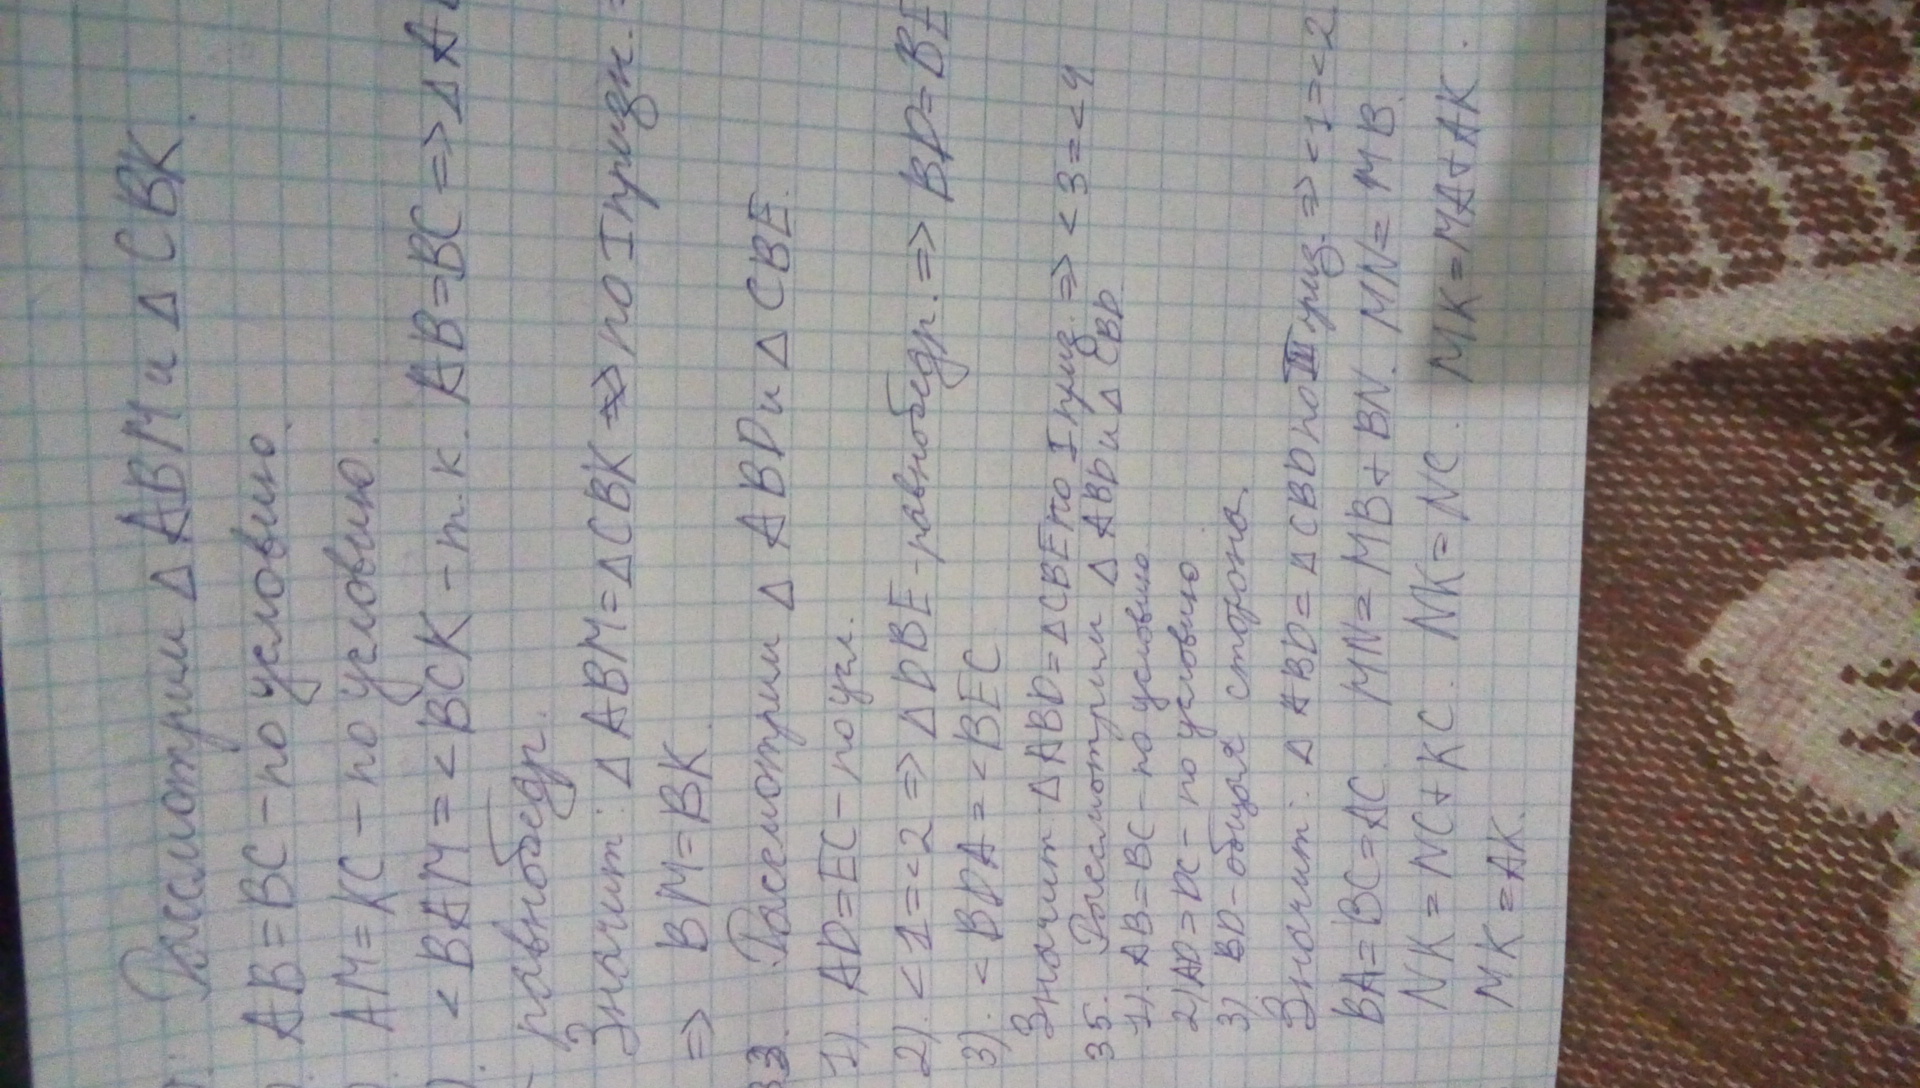 Рассмотрим Δ ABM и Δ CBK.
). AB = BC – по условию.
). AM = KC – по условию.
). < BAM = < BCK – т. к. AB = BC => Δ A
равнобедр.
Значит: Δ ABM = Δ CBK => по I призн. =
=> BM = BK.
33 Рассмотрим Δ ABD и Δ CBE.
1). AD = EC – по усл.
2). < 1 = < 2 => Δ DBE – равнобедр. => BD = BE
3). < BDA = < BEC
Значит ΔABD = ΔCBE по I приз. => < 3 = < 4
35. Рассмотрим Δ ABD и Δ CBD.
1). AB = BC – по условию.
2) AD = DC – по условию
3) BD – общая сторона.
Значит: Δ ABD = Δ CBD по III приз. => < 1 = < 2
BA = BC = AC. MN = MB + BN. MN = MB.
NK = NC + KC. NK = NC. MK = MA + AK.
MK = AK.